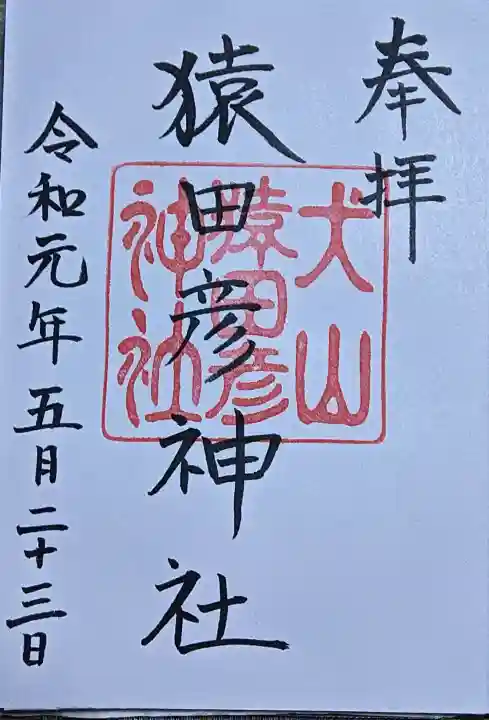 奉拝
猿田彦神社
令和元年五月二十三日
犬山
猿田彦
神社